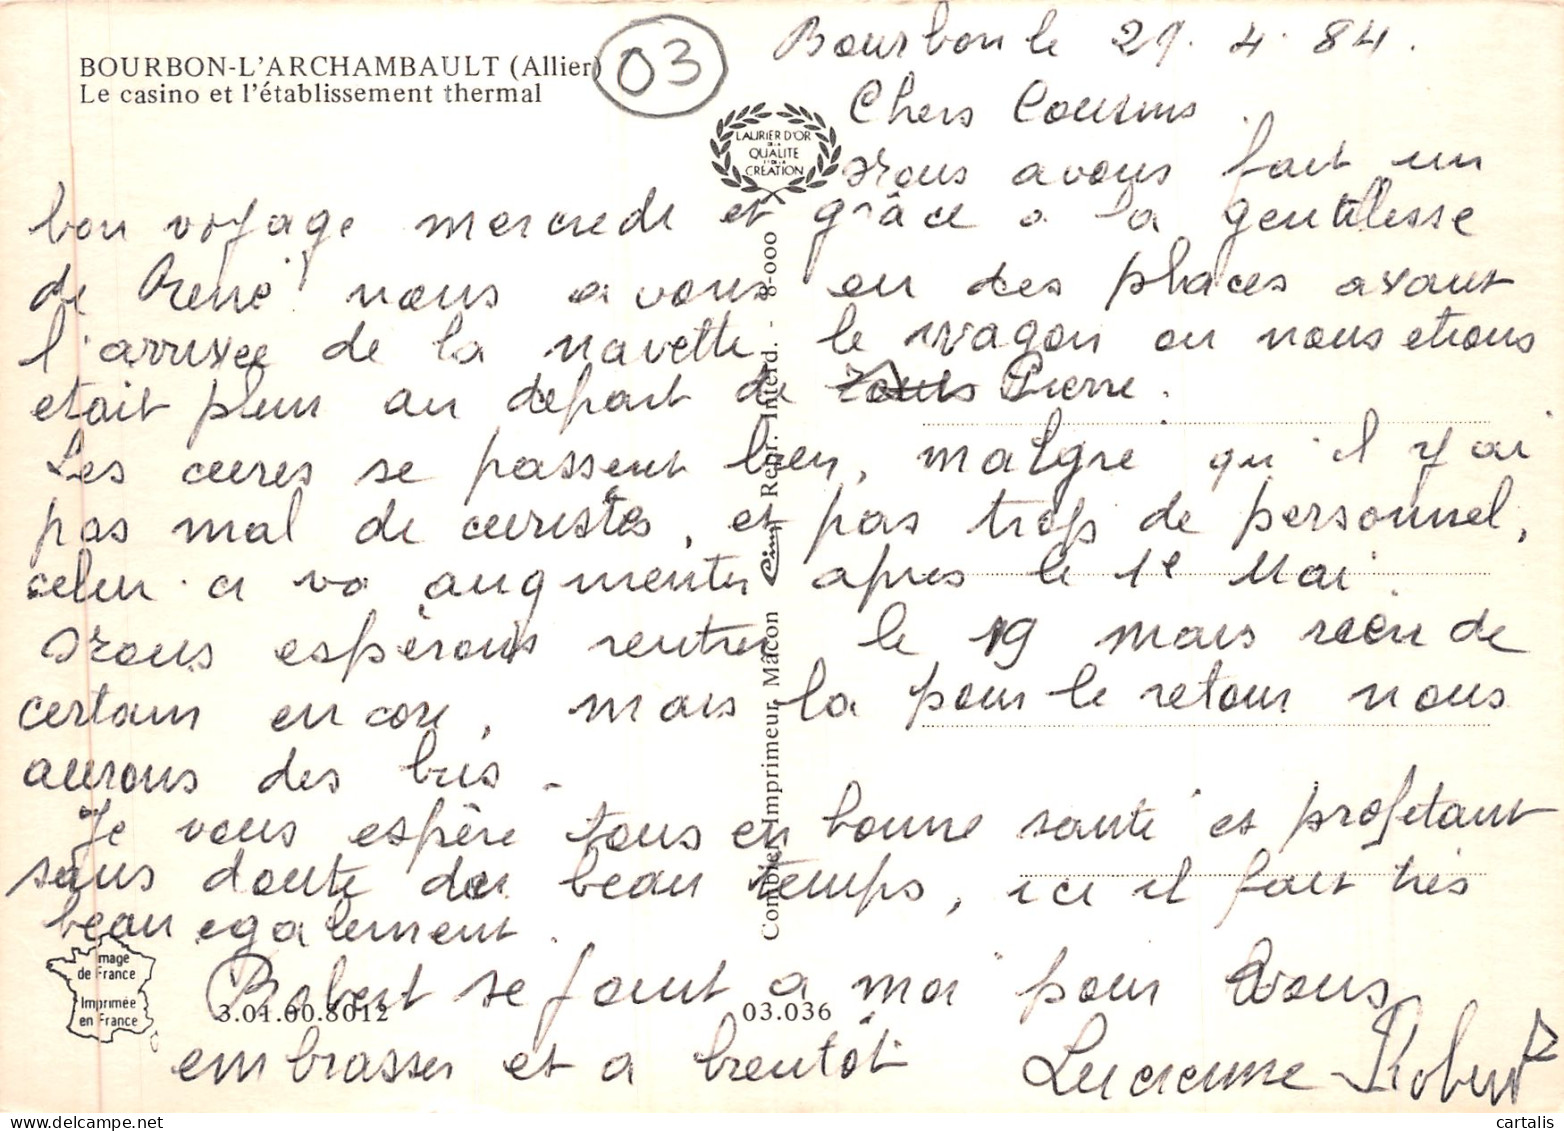 BOURBON-L'ARCHAMBAULT (Allier)
Le casino et l'établissement thermal
03
Bourbon le 21.4.84.
LAURIER D'OR
DE LA
QUALITE
ET DE LA
CREATION
Chers Cousins.
Nous avons fait un
bon voyage mercredi et grâce a la gentillesse
de René nous avons eu des places avant
l'arrivée de la navette, le wagon ou nous etions
etait plein au depart de Pierre.
Les cures se passent bien, malgre qu'il y ai
pas mal de curistes, et pas trop de personnel,
celui-ci va augmenter apres le 1e Mai.
Nous espérons rentrer le 19 mais rien de
certain encore, mais la pour le retour nous
aurons des bus.
Je vous espère tous en bonne santé et profitant
sans doute du beau temps, ici il fait très
beau egalement.
Robert se joint a moi pour vous
embrasser et a bientôt Lucienne Robert
Combier Imprimeur Mâcon Cim Repr. Interd. - 8-000
Image
de France
Imprimée
en France
3.01.00.8012
03.036
www.delcampe.net
cartalis